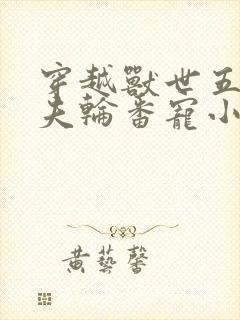 穿越獸世五
夫輪番寵小
黃藝馨